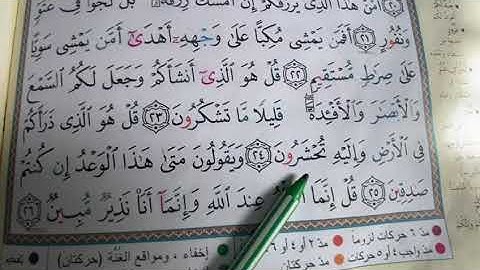 أَمَّنْ هَٰذَا الَّذِى يَرْزُقُكُمْ إِنْ أَمْسَكَ رِزْقَهُ ۚ بَل لَّجُّوا۟ فِى عُتُوٍّ
وَنُفُورٍ ٢١ أَفَمَن يَمْشِى مُكِبًّا عَلَىٰ وَجْهِهِۦٓ أَهْدَىٰٓ أَمَّن يَمْشِى سَوِيًّا
عَلَىٰ صِرَٰطٍ مُّسْتَقِيمٍ ٢٢ قُلْ هُوَ الَّذِىٓ أَنشَأَكُمْ وَجَعَلَ لَكُمُ السَّمْعَ
وَالْأَبْصَٰرَ وَالْأَفْـِٔدَةَ ۖ قَلِيلًا مَّا تَشْكُرُونَ ٢٣ قُلْ هُوَ الَّذِى ذَرَأَكُمْ
فِى الْأَرْضِ وَإِلَيْهِ تُحْشَرُونَ ٢٤ وَيَقُولُونَ مَتَىٰ هَٰذَا الْوَعْدُ إِن كُنتُمْ
صَٰدِقِينَ ٢٥ قُلْ إِنَّمَا عِندَ اللَّهِ وَإِنَّمَآ أَنَا۠ نَذِيرٌ مُّبِينٌ ٢٦
مدّ ٦ حركات لزوماً مدّ ٢ أو ٤ أو ٦ إخفاء، ومواقع الغُنَّة (حركتان)
مدّ واجب ٤ أو ٥ حركات مدّ حركتان